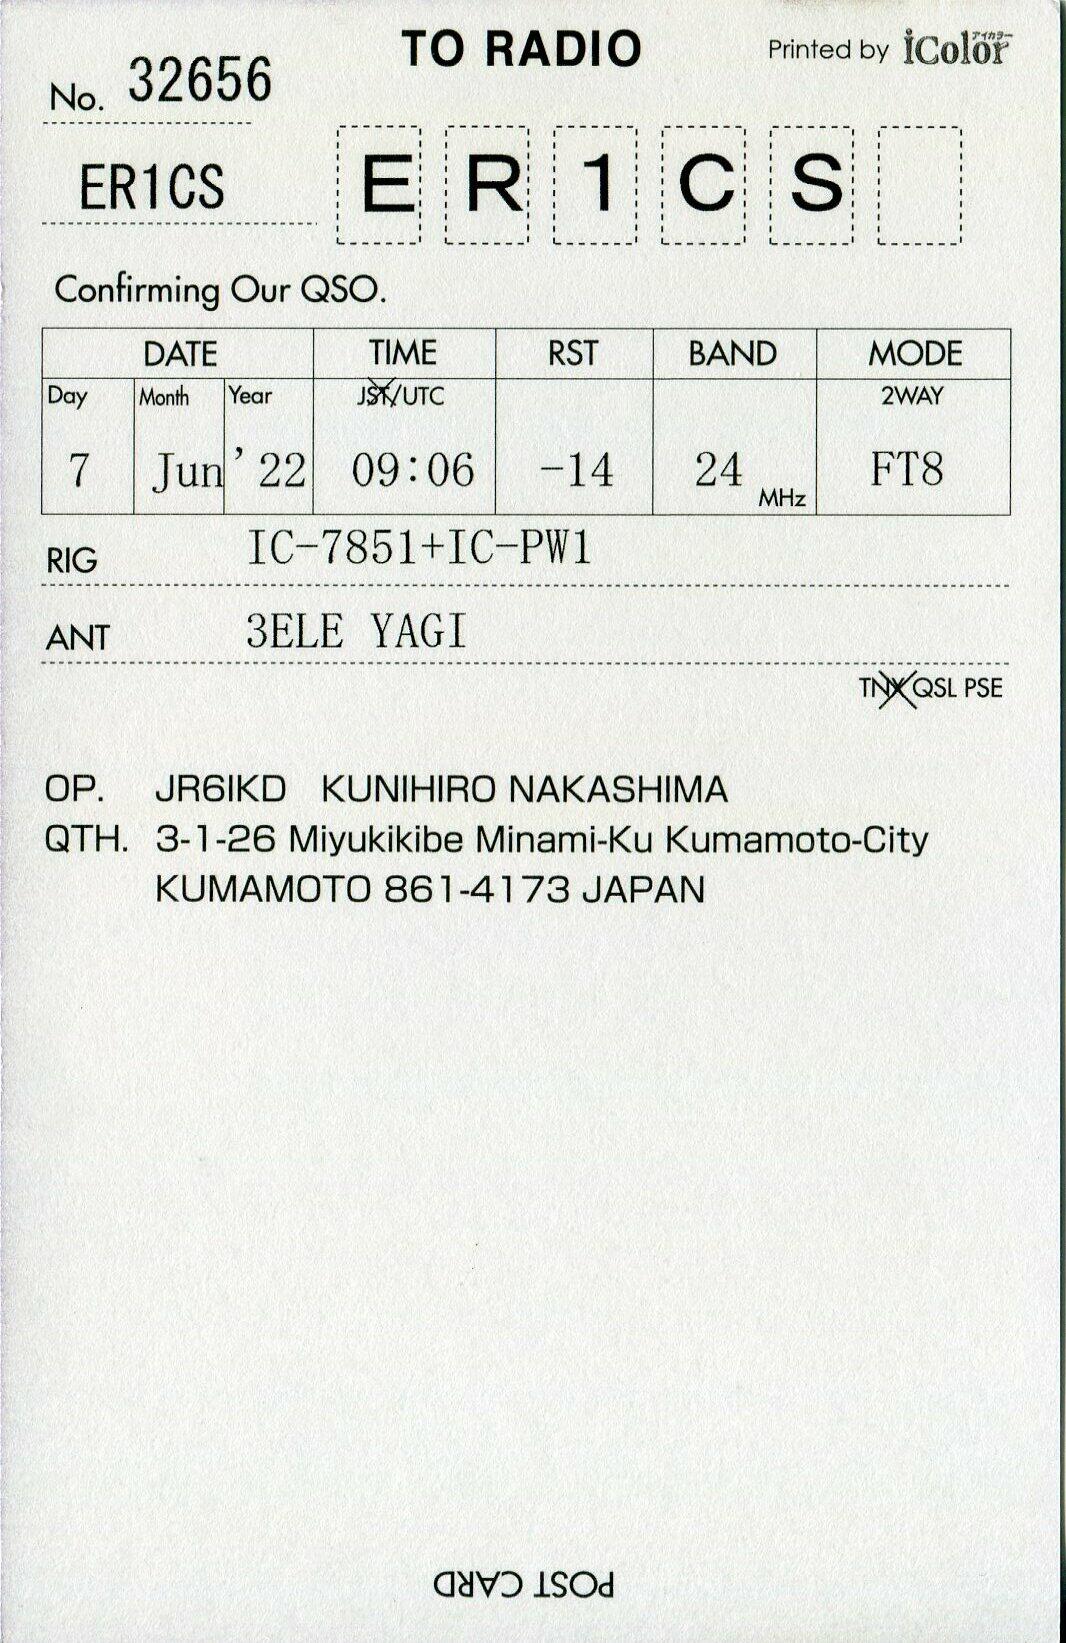 TO RADIO
Printed by iColor アイカラー
No. 32656
ER1CS
E R 1 C S
Confirming Our QSO.
DATE TIME RST BAND MODE
Day Month Year JST/UTC 2WAY
7 Jun '22 09:06 -14 24 MHz FT8
RIG IC-7851+IC-PW1
ANT 3ELE YAGI
TNX QSL PSE
OP. JR6IKD KUNIHIRO NAKASHIMA
QTH. 3-1-26 Miyukikibe Minami-Ku Kumamoto-City
KUMAMOTO 861-4173 JAPAN
POST CARD